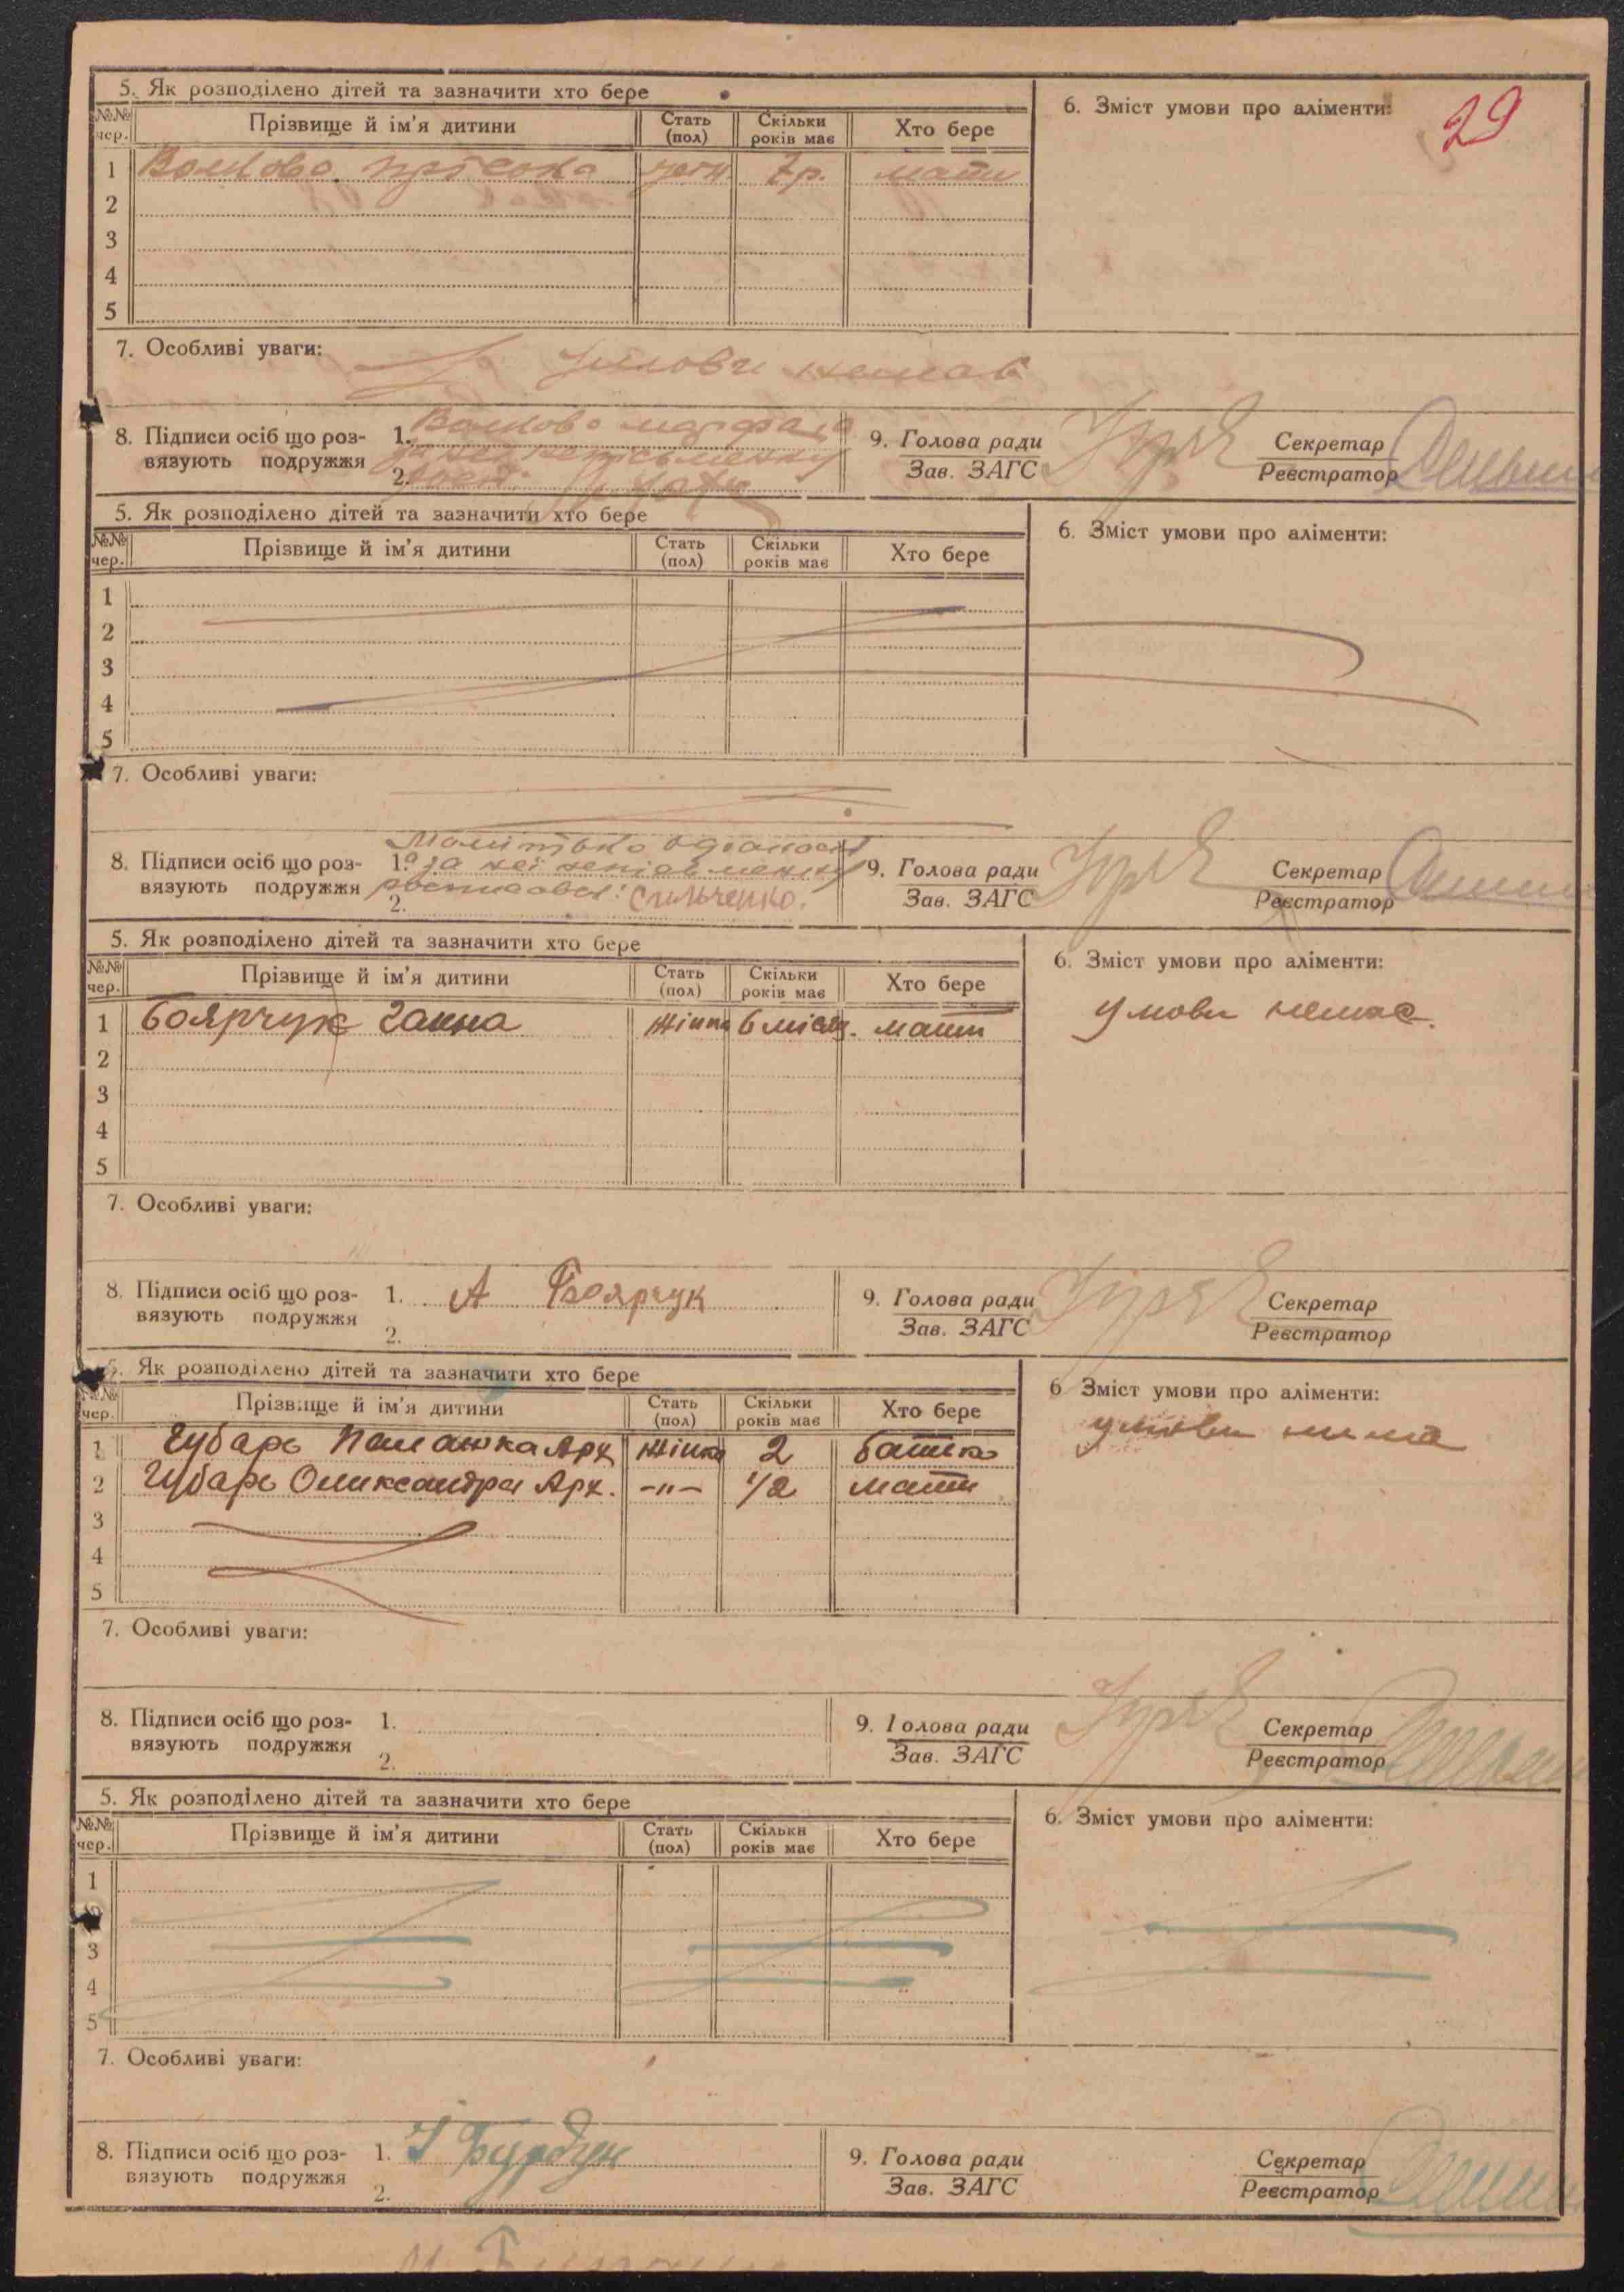 29
5. Як розподілено дітей та зазначити хто бере
6. Зміст умови про аліменти:
№№ чер. Прізвище й ім'я дитини Стать (пол) Скільки років має Хто бере
1 Волкова 7 р. мати
2
3
4
5
7. Особливі уваги:
Умови немає
8. Підписи осіб що роз-
вязують подружжя
1. Волкова
2.
9. Голова ради
Зав. ЗАГС
Секретар
Реєстратор
5. Як розподілено дітей та зазначити хто бере
6. Зміст умови про аліменти:
№№ чер. Прізвище й ім'я дитини Стать (пол) Скільки років має Хто бере
1
2
3
4
5
7. Особливі уваги:
8. Підписи осіб що роз-
вязують подружжя
1. за неї
2. Стильченко.
9. Голова ради
Зав. ЗАГС
Секретар
Реєстратор
5. Як розподілено дітей та зазначити хто бере
6. Зміст умови про аліменти:
№№ чер. Прізвище й ім'я дитини Стать (пол) Скільки років має Хто бере
1 Боярчук Ганна жінка 6 місяц. мати
умови немає.
2
3
4
5
7. Особливі уваги:
8. Підписи осіб що роз-
вязують подружжя
1. А Боярчук
2.
9. Голова ради
Зав. ЗАГС
Секретар
Реєстратор
5. Як розподілено дітей та зазначити хто бере
6 Зміст умови про аліменти:
№№ чер. Прізвище й ім'я дитини Стать (пол) Скільки років має Хто бере
1 Губарь Палажка Арх жінка 2 батько
умови нима
2 Губарь Олександра Арх. -"- 1/2 мати
3
4
5
7. Особливі уваги:
8. Підписи осіб що роз-
вязують подружжя
1.
2.
9. Голова ради
Зав. ЗАГС
Секретар
Реєстратор
5. Як розподілено дітей та зазначити хто бере
6. Зміст умови про аліменти:
№№ чер. Прізвище й ім'я дитини Стать (пол) Скільки років має Хто бере
1
3
4
5
7. Особливі уваги:
8. Підписи осіб що роз-
вязують подружжя
1.
2.
9. Голова ради
Зав. ЗАГС
Секретар
Реєстратор